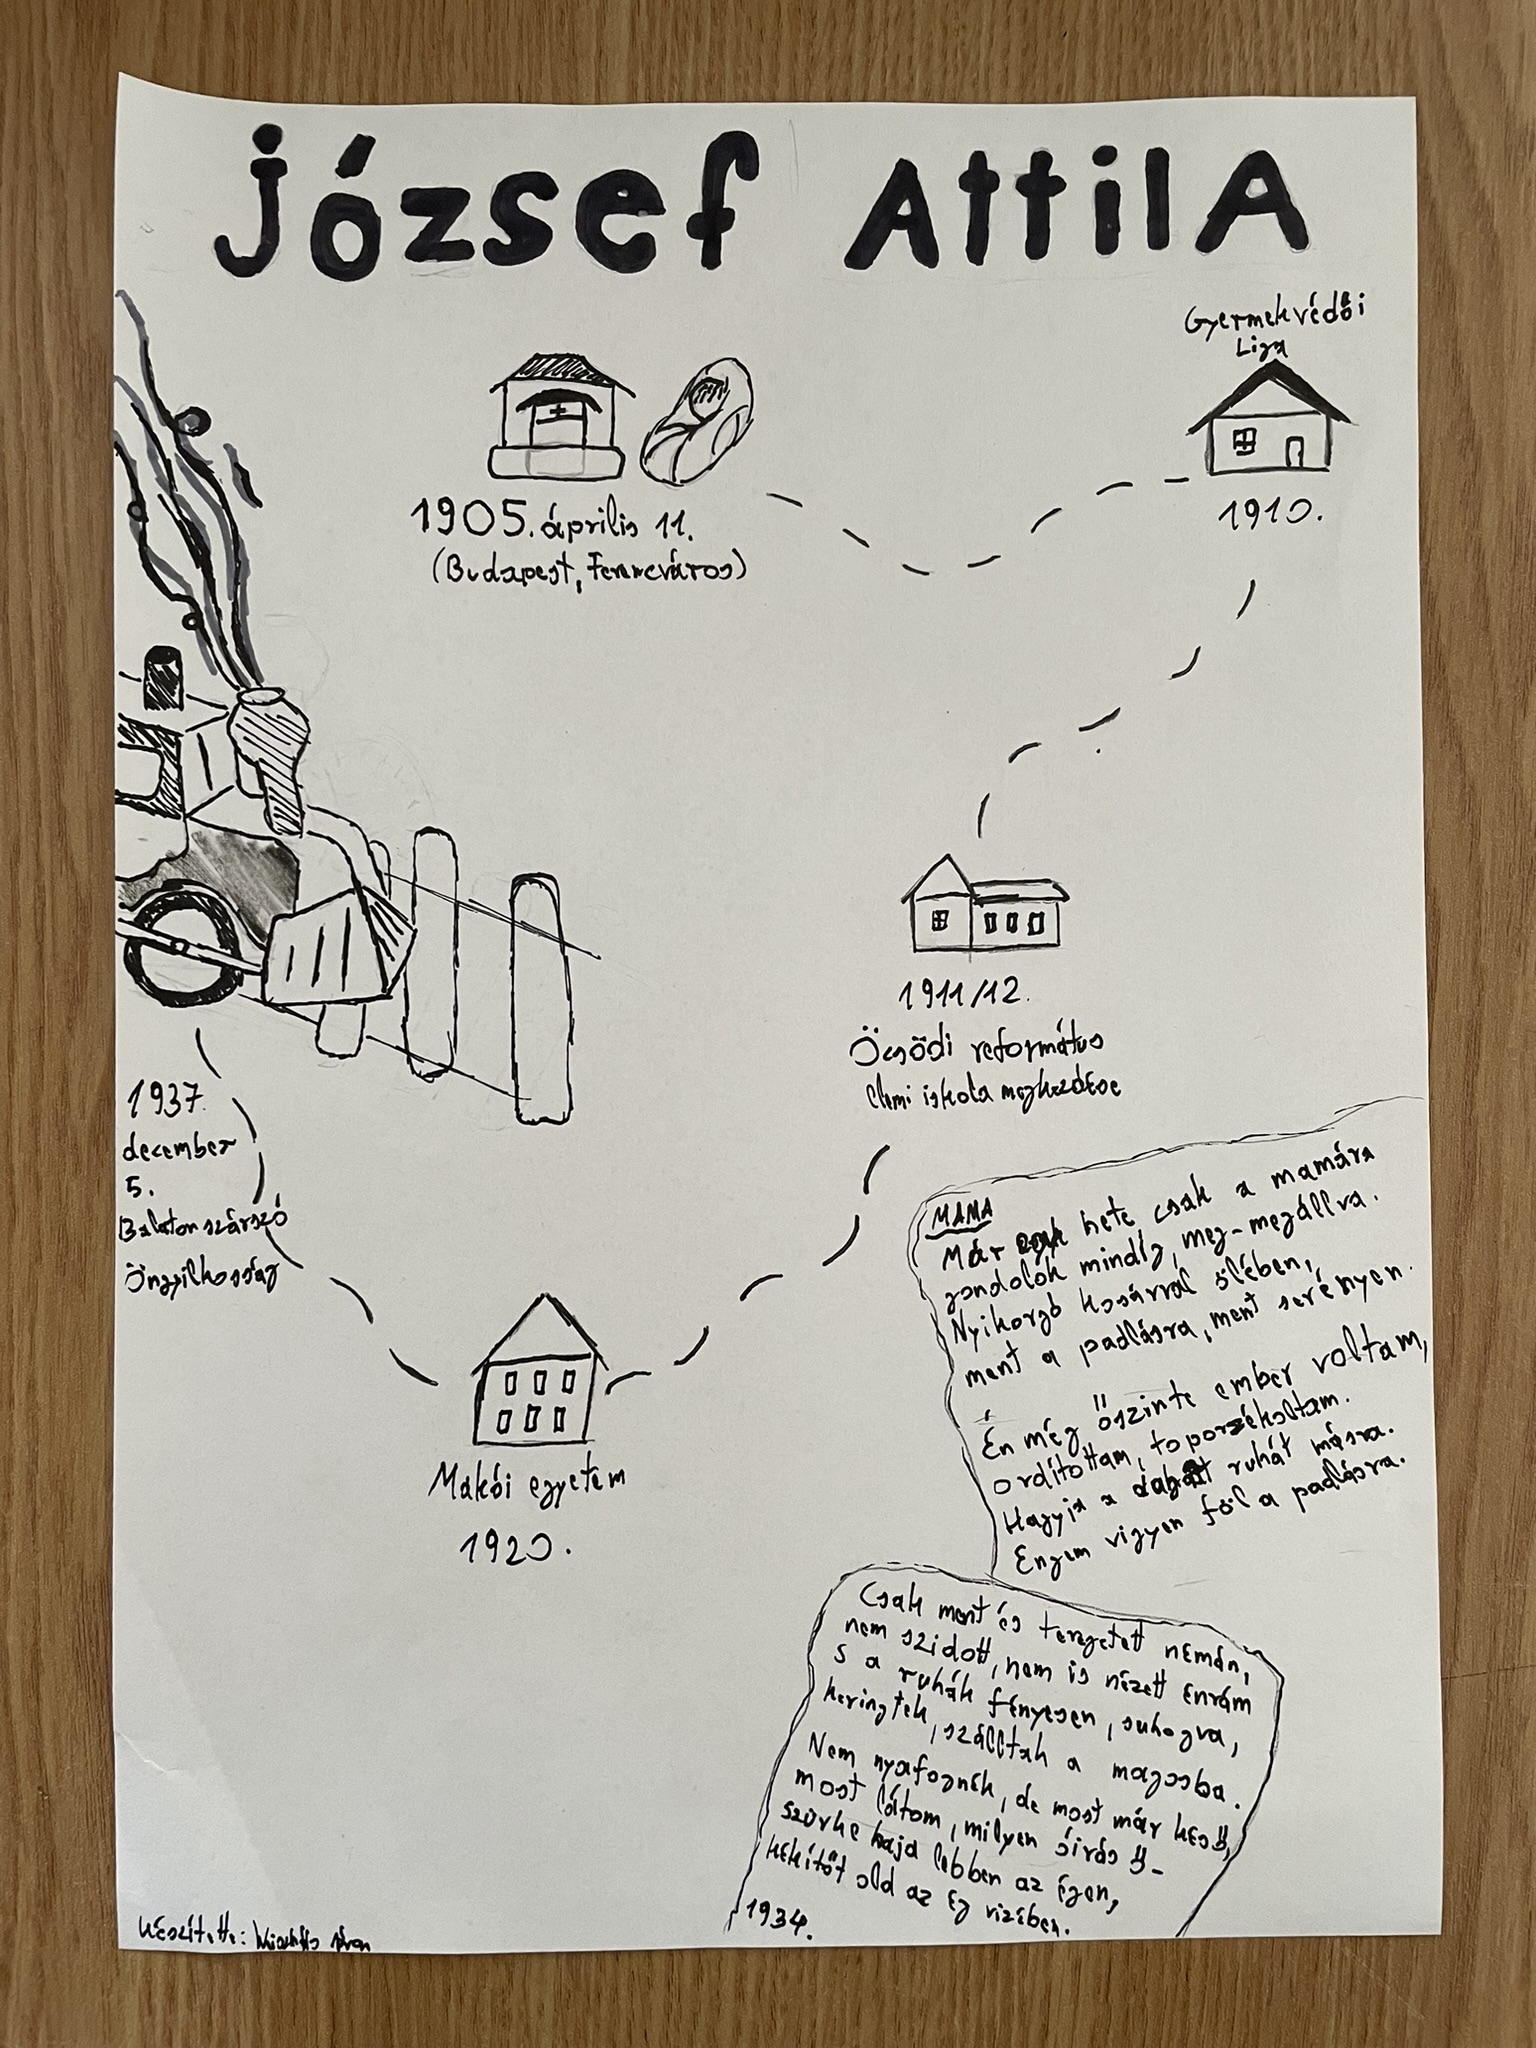 József Attila
Gyermekvédői
Liga
1905. április 11.
(Budapest, Ferencváros)
1910.
1911/12.
Öcsödi református
elemi iskola megkezdése
1937.
december
5.
Balatonszárszó
Öngyilkosság
Makói egyetem
1920.
MAMA
Már egy hete csak a mamára
gondolók mindíg, meg-megállva.
Nyikorgó kosárral ölében,
ment a padlásra, ment serényen.
Én még őszinte ember voltam,
ordítottam, toporzékoltam.
Hagyja a dagadt ruhát másra.
Engem vigyen föl a padlásra.
Csak ment és teregetett némán,
nem szidott, nem is nézett énrám
s a ruhák fényesen, suhogva,
keringtek, szálltak a magosba.
Nem nyafognék, de most már késő,
most látom, milyen óirás ő-
szürke haja lebben az égen,
kékítőt old az ég vizében.
1934.
Készítette: